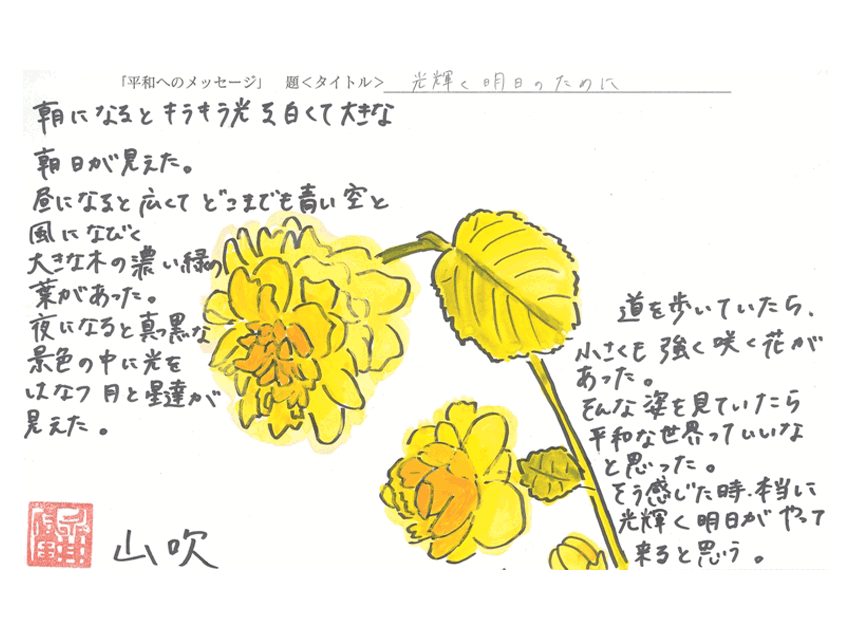 「平和へのメッセージ」 題＜タイトル＞ 光輝く明日のために
朝になるとキラキラ光る白くて大きな
朝日が見えた。
昼になると広くてどこまでも青い空と
風になびく
大きな木の濃い緑の
葉があった。
夜になると真っ黒な
景色の中に光を
はなつ月と星達が
見えた。
道を歩いていたら、
小さくも強く咲く花が
あった。
そんな姿を見ていたら
平和な世界っていいな
と思った。
そう感じた時、本当に
光輝く明日がやって
来ると思う。
山吹